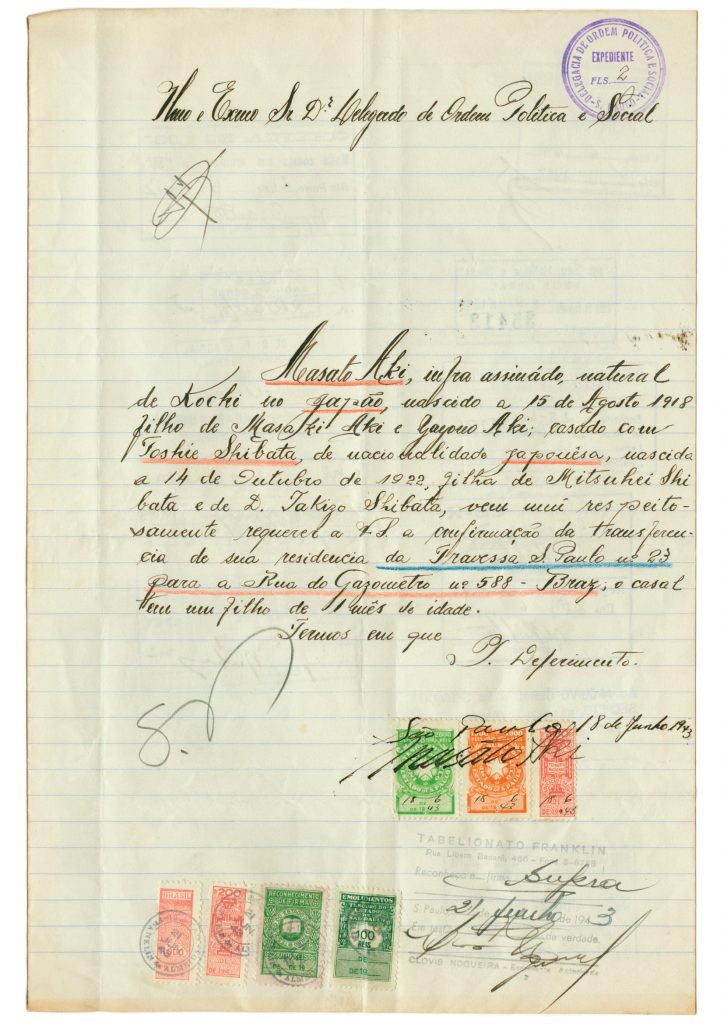 DELEGACIA DE ORDEM POLITICA E SOCIAL
EXPEDIENTE
FLS. 2
Ilmo e Exmo Sr Dr. Delegado de Ordem Politica e Social
Masato Aki, infra assinado, natural
de Kochi no Japão, nascido a 15 de Agosto 1918
filho de Masaki Aki e Yayono Aki; casado com
Toshie Shibata, de nacionalidade japonêsa, nascida
a 14 de Outubro de 1922, filha de Mitsuhei Shi
bata e de D. Takizo Shibata, vem mui respeito-
samente requerer a V.S. a confirmação da transferen-
cia de sua residencia da Travessa S. Paulo nº 23
para a Rua do Gazometro nº 588 - Braz, o casal
tem um filho de 1 mês de idade.
Termos em que
P. Deferimento.
São Paulo, 18 de Junho 1943
Masato Aki
18 6 43
18 6 43
18 6 43
TABELIONATO FRANKLIN
Rua Libero Badaró,
Reconheço a firma supra
S. Paulo, 21 de junho de 1943
Em test. da verdade.
CLOVIS NOGUEIRA - Escrevente Autorizado
BRASIL
200
RECONHECIMENTO DE FIRMA
EMOLUMENTOS
TESOURO DO ESTADO
SÃO PAULO
REIS